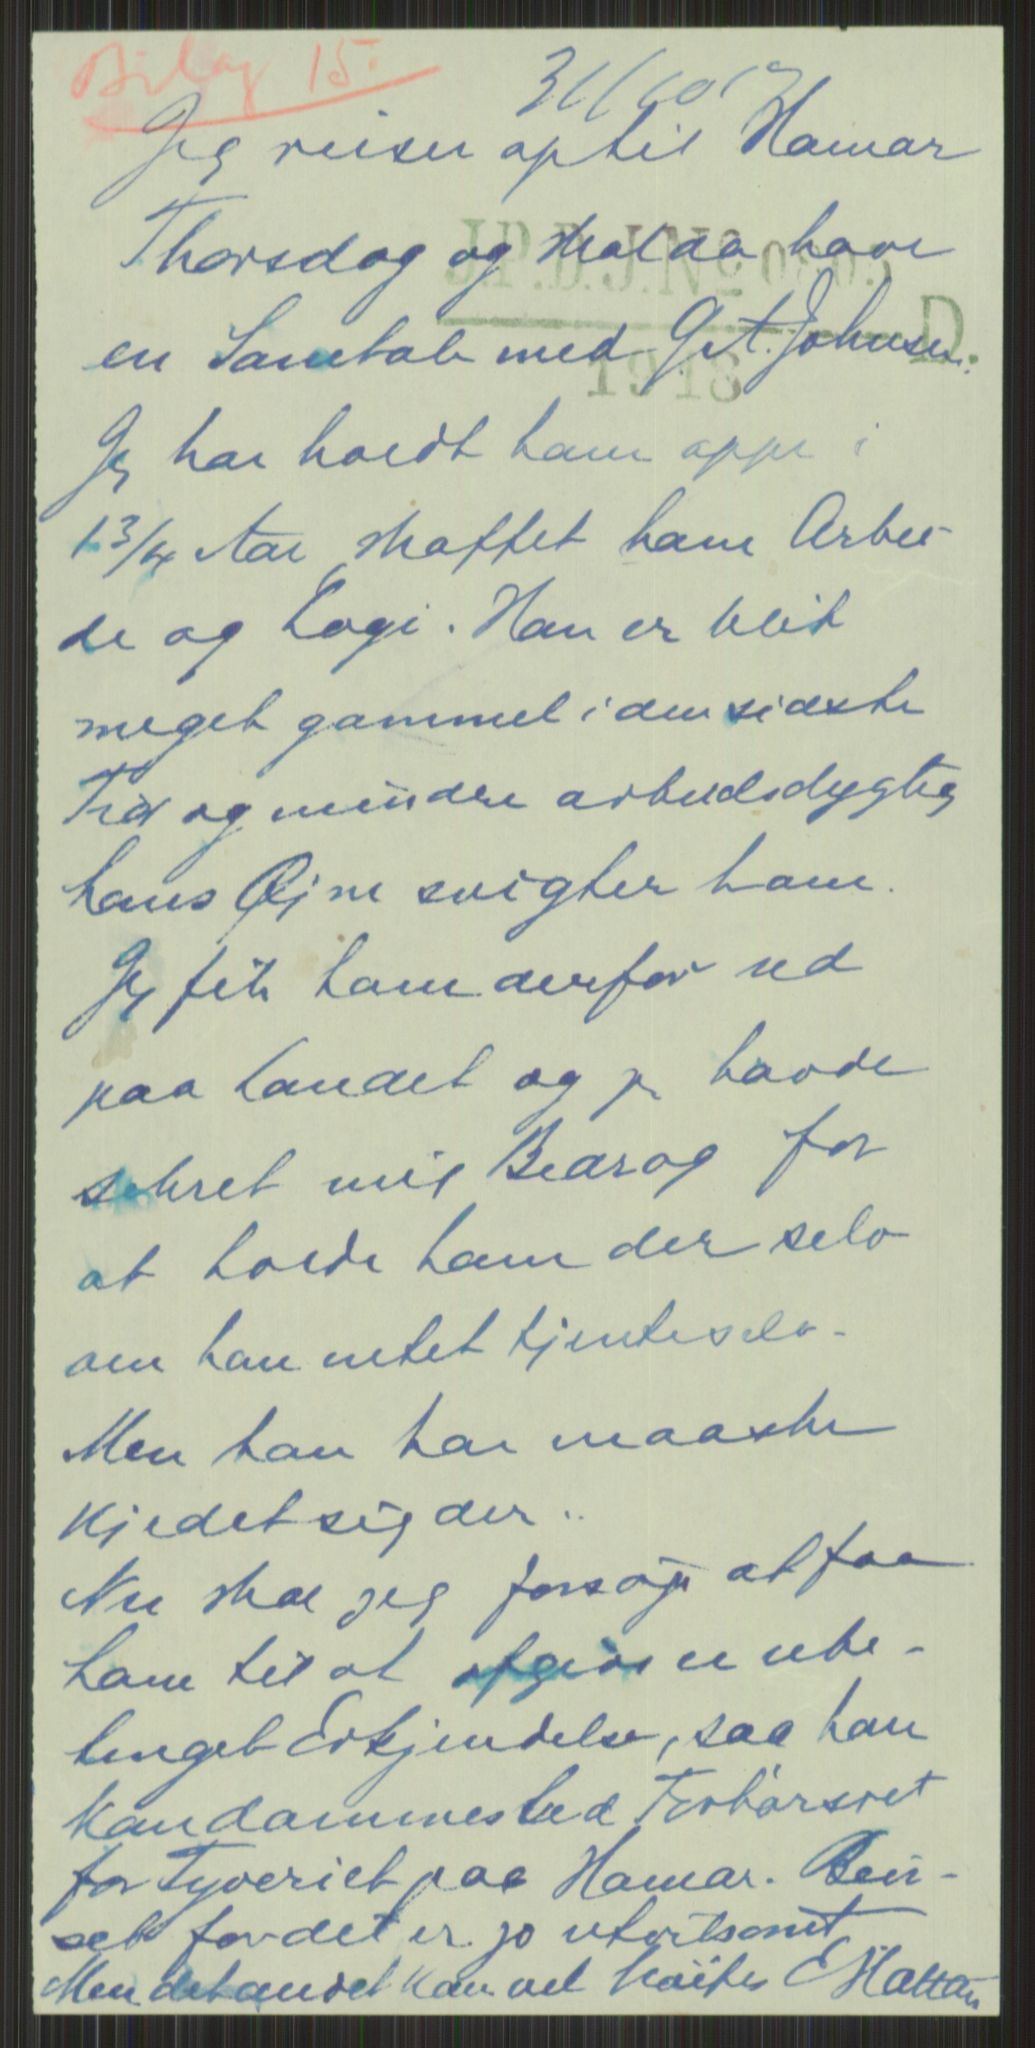 Bilag 15.
31/10 17
Jeg reiser op til Hamar
J.P.D.J. No
Thorsdag og skal da have
D.
en Samtale med G. A. Johnsen.
1918
Jeg har holdt ham oppe i
1 3/4 Aar skaffet ham Arbei-
de og Logi. Han er blit
meget gammel i den sidste
Tid og mindre arbeidsdygtig
hans Øjne svigter ham.
Jeg fik ham derfor ud
paa Landet og jeg havde
sikret mig Bidrag for
at holde ham der selv
om han intet tjente selv.
Men han har maaske
kjedet sig der..
Nu skal jeg forsøge at faa
ham til at afgive en ube-
tinget Erkjendelse, saa han
kan dømmes ved Forhørsret
for Tyveriet paa Hamar.
for det er jo utvilsomt
Men det andet kan vel E Hattan